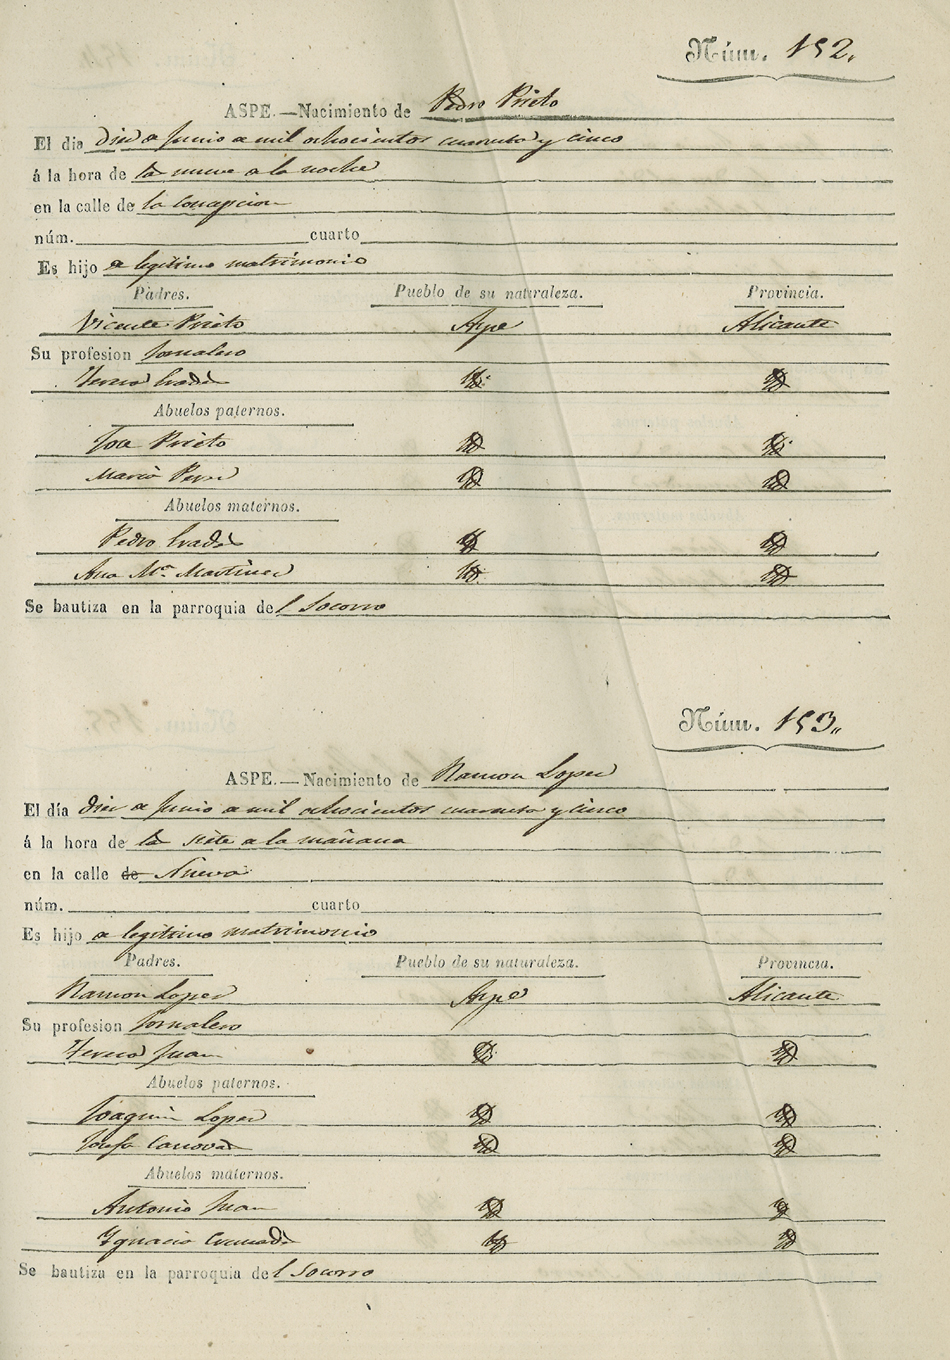 Núm. 152.
ASPE.—Nacimiento de Pedro Prieto
El dia diez de Junio de mil ochocientos cuarenta y cinco
á la hora de la nueve de la noche
en la calle de la Concepcion
núm. cuarto
Es hijo de legitimo matrimonio
Padres. Pueblo de su naturaleza. Provincia.
Vicente Prieto Aspe Alicante
Su profesion Jornalero
Teresa Yd. Yd.
Abuelos paternos.
Jose Prieto Yd. Yd.
Maria Perez Yd. Yd.
Abuelos maternos.
Pedro Yd. Yd.
Ana Ma. Martinez Yd. Yd.
Se bautiza en la parroquia del Socorro
Núm. 153.
ASPE.—Nacimiento de Ramon Lopez
El día diez de Junio de mil ochocientos cuarenta y cinco
á la hora de la siete de la mañana
en la calle de Nueva
núm. cuarto
Es hijo de legitimo matrimonio
Padres. Pueblo de su naturaleza. Provincia.
Ramon Lopez Aspe Alicante
Su profesion Jornalero
Teresa Juan Yd. Yd.
Abuelos paternos.
Joaquin Lopez Yd. Yd.
Josefa Canovas Yd. Yd.
Abuelos maternos.
Antonio Juan Yd. Yd.
Ygnacia Cremades Yd. Yd.
Se bautiza en la parroquia del Socorro